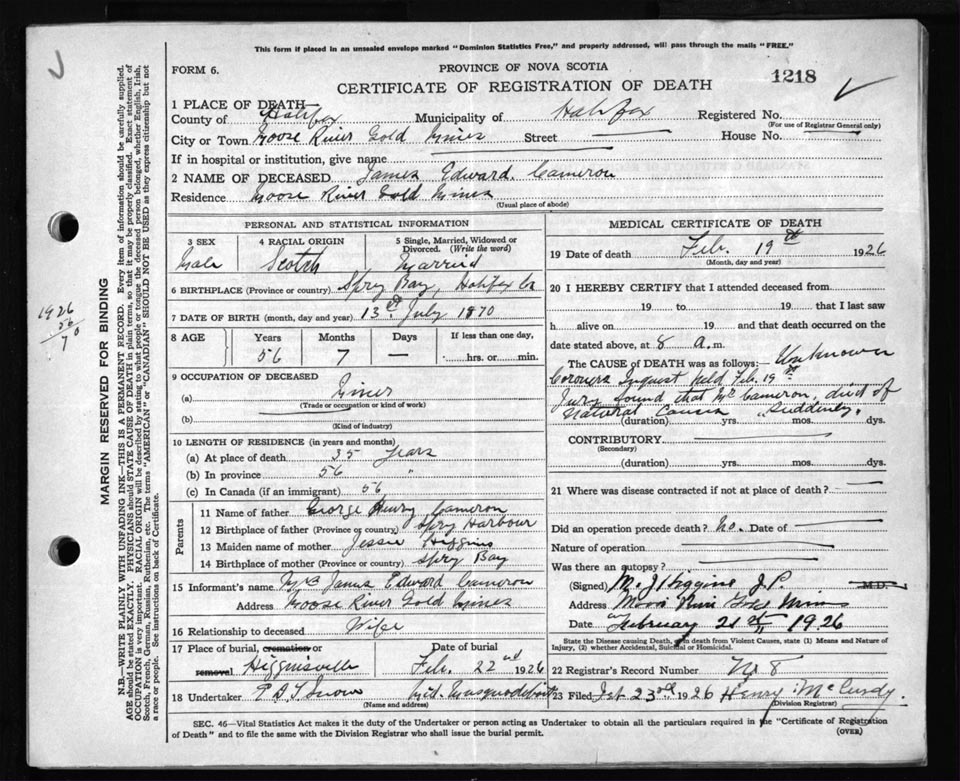 This form if placed in an unsealed envelope marked "Dominion Statistics Free," and properly addressed, will pass through the mails "FREE."
FORM 6.
PROVINCE OF NOVA SCOTIA
1218
CERTIFICATE OF REGISTRATION OF DEATH
1 PLACE OF DEATH
County of Halifax Municipality of Halifax Registered No.
(For use of Registrar General only)
City or Town Moose River Gold Mines Street House No.
If in hospital or institution, give name
2 NAME OF DECEASED James Edward Cameron
Residence Moose River Gold Mines
(Usual place of abode)
PERSONAL AND STATISTICAL INFORMATION
3 SEX 4 RACIAL ORIGIN 5 Single, Married, Widowed or Divorced. (Write the word)
Male Scotch Married
6 BIRTHPLACE (Province or country) Spry Bay, Halifax Co
7 DATE OF BIRTH (month, day and year) 13th July 1870
8 AGE Years Months Days If less than one day,
56 7 — hrs. or min.
9 OCCUPATION OF DECEASED
(a) Miner
(Trade or occupation or kind of work)
(b)
(Kind of industry)
10 LENGTH OF RESIDENCE (in years and months)
(a) At place of death 35 years
(b) In province 56 "
(c) In Canada (if an immigrant) 56
Parents
11 Name of father George Henry Cameron
12 Birthplace of father (Province or country) Spry Harbour
13 Maiden name of mother Jessie Higgins
14 Birthplace of mother (Province or country) Spry Bay
15 Informant's name Mrs James Edward Cameron
Address Moose River Gold Mines
16 Relationship to deceased Wife
17 Place of burial, cremation or removal Date of burial
Higginsville Feb. 22nd 1926
18 Undertaker Mid. Musquodoboit
(Name and address)
MEDICAL CERTIFICATE OF DEATH
19 Date of death Feb. 19th 1926
(Month, day and year)
20 I HEREBY CERTIFY that I attended deceased from
19 to 19 that I last saw
h alive on 19 and that death occurred on the
date stated above, at 8 a.m.
The CAUSE OF DEATH was as follows: Unknown
Coroners Inquest held Feb. 19th
Jury found that Mr Cameron, died of
Natural Causes "Suddenly"
(duration) yrs. mos. dys.
CONTRIBUTORY
(Secondary)
(duration) yrs. mos. dys.
21 Where was disease contracted if not at place of death?
Did an operation precede death? No. Date of
Nature of operation
Was there an autopsy?
(Signed) M. J. Higgins J.P. M.D.
Address Moose River Gold Mines
Date February 21st 1926
State the Disease causing Death, or in death from Violent Causes, state (1) Means and Nature of Injury, (2) whether Accidental, Suicidal or Homicidal.
22 Registrar's Record Number No 8
23 Filed Feb. 23rd 1926 Henry McCurdy.
(Division Registrar)
SEC. 46—Vital Statistics Act makes it the duty of the Undertaker or person acting as Undertaker to obtain all the particulars required in the "Certificate of Registration
of Death" and to file the same with the Division Registrar who shall issue the burial permit.
(OVER)
MARGIN RESERVED FOR BINDING
N.B.—WRITE PLAINLY WITH UNFADING INK—THIS IS A PERMANENT RECORD. Every item of information should be carefully supplied.
AGE should be stated EXACTLY. PHYSICIANS should STATE CAUSE OF DEATH in plain terms, so that it may be properly classified. Exact statement of
OCCUPATION is very important. RACIAL ORIGIN will be described by stating to what people or tongue the deceased person belonged, whether English, Irish,
Scotch, French, German, Russian, Ruthenian, etc. The terms "AMERICAN" or "CANADIAN" SHOULD NOT BE USED as they express citizenship but not
a race or people. See instructions on back of Certificate.
1926
56
70